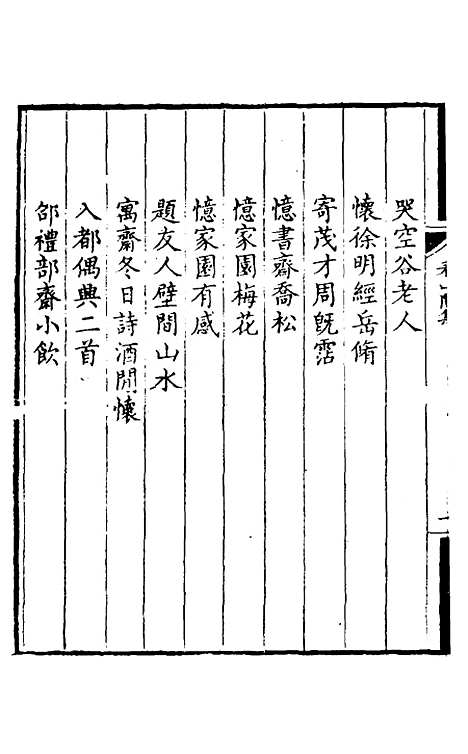 哭空谷老人
懷徐明經岳脩
寄茂才周旣霑
憶書齋喬松
憶家園梅花
憶家園有感
題友人壁間山水
寓齋冬日詩酒閒懷
入都偶興二首
邵禮部齋小飲